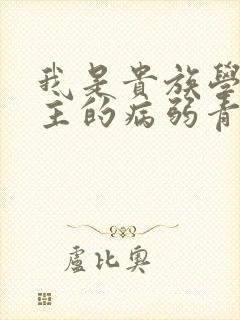 我是貴族學
主的病弱青
盧比奧